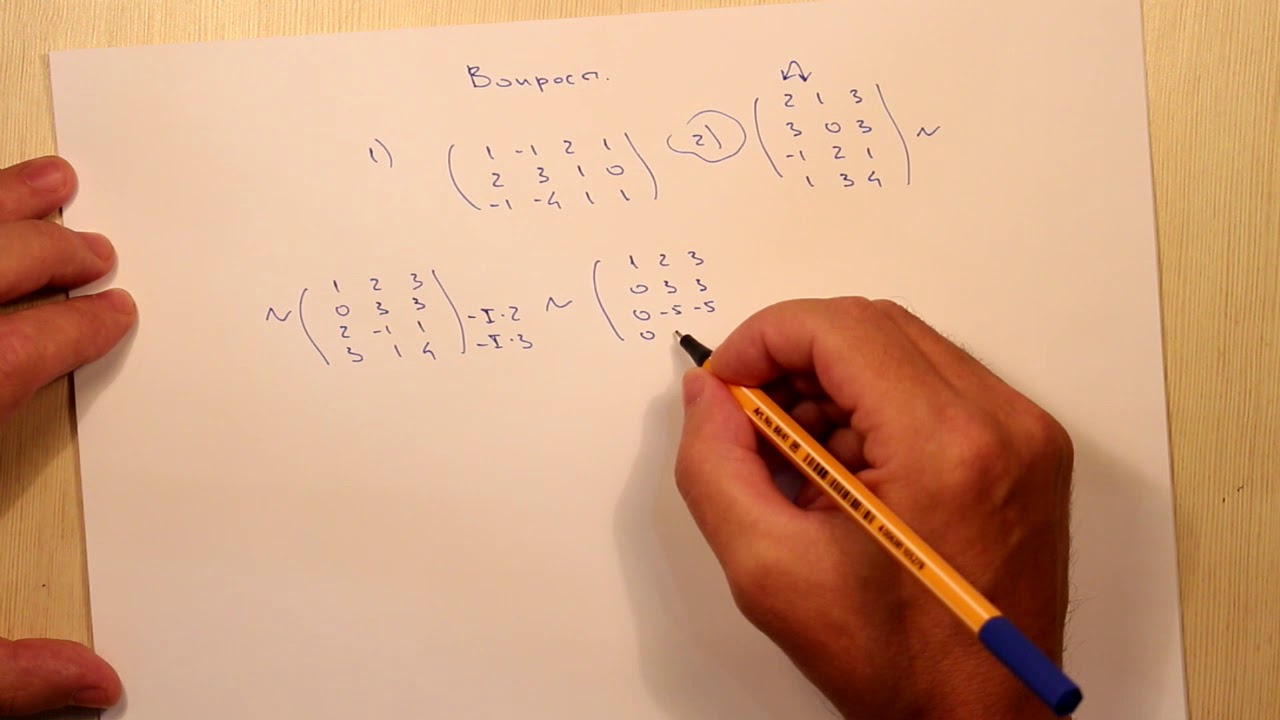 Вопросы.
1)
1 -1 2 1
2 3 1 0
-1 -4 1 1
2)
2 1 3
3 0 3
-1 2 1
1 3 4
~
~
1 2 3
0 3 3
2 -1 1 -I·2
3 1 4 -I·3
~
1 2 3
0 3 3
0 -5 -5
0
Art.No.